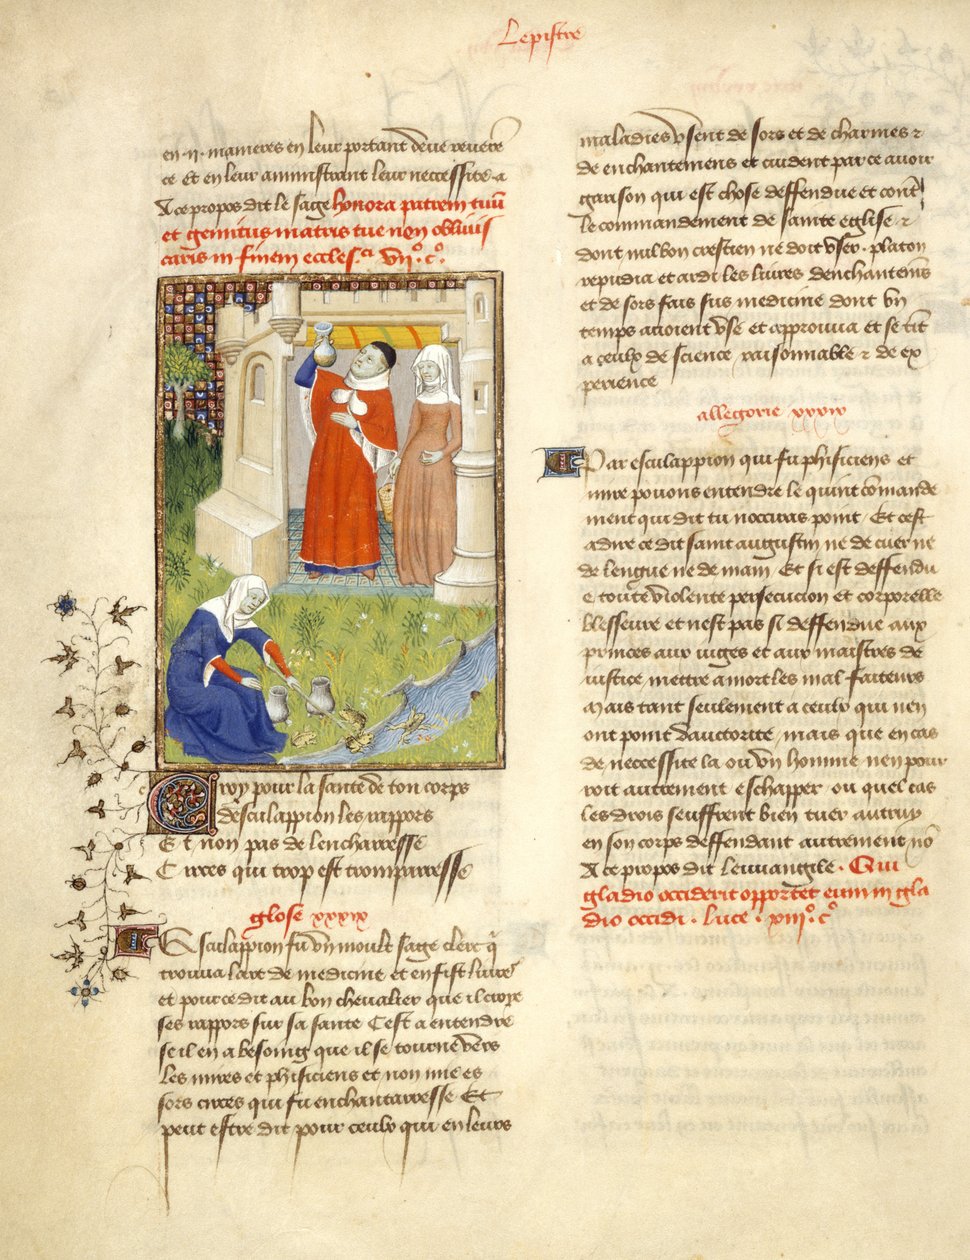 Lepistre
en .ii. manieres en leur portant deue reueren
ce Et en leur aministrant leur necessite. a
A ce propos dit le sage honora patrem tuū
et gemitus matris tue non obliuis
caris in finem eccles.ca vij.o c.o
Croy pour la sante de ton corps
desculappion les rappors
Et non pas de lencharresse
Circes qui trop est tromparresse
glose xxxix
Esculappion fu vn moult sage clerc q̄
trouua lart de medicine et en fist liures
et pour ce dit au bon cheualier que il croye
ses rappors sur sa sante Cest a entendre
se il en a besoing que il se tourne vers
les mires et phisiciens et non mie es
sors circes qui fu enchantarresse Et
peut estre dit pour ceulx qui en leurs
maladies vsent de sors et de charmes ⁊
de enchantemens et cuident par ce auoir
garison qui est chose deffendue et contre
le commandement de sainte eglise ⁊
dont nul bon crestien ne doit vser. platon
repudia et ardi les liures denchantemēs
et de sors fais sus medicine dont vn
temps auoient vse et approuua et se tit
a ceulx de science raisonnable ⁊ de ex
perience
allegorie xxxix
Par esculappion qui fu phisiciens et
mire pouons entendre le quint cōmande
ment qui dit tu nocciras point Et cest
adire ce dit saint augustin ne de cuer ne
de lengue ne de main Et si est deffendu
e toute violente persecucion et corporelle
blesseure et nest pas si deffendue aux
princes aux iuges et aux maistres de
iustice mettre a mort les malfaiteurs
Mais tant seulement a ceulx qui nen
ont point dauctorite, mais que en cas
de necessite la ou vn homme nen pour
roit autrement eschapper ou quel cas
les drois seuffrent bien tuer autruy
en son corps deffendant autrement nō
A ce propos dit leuuangile. Qui
gladio occiderit opportet eum in gla
dio occidi. luce. xiij.o c.o